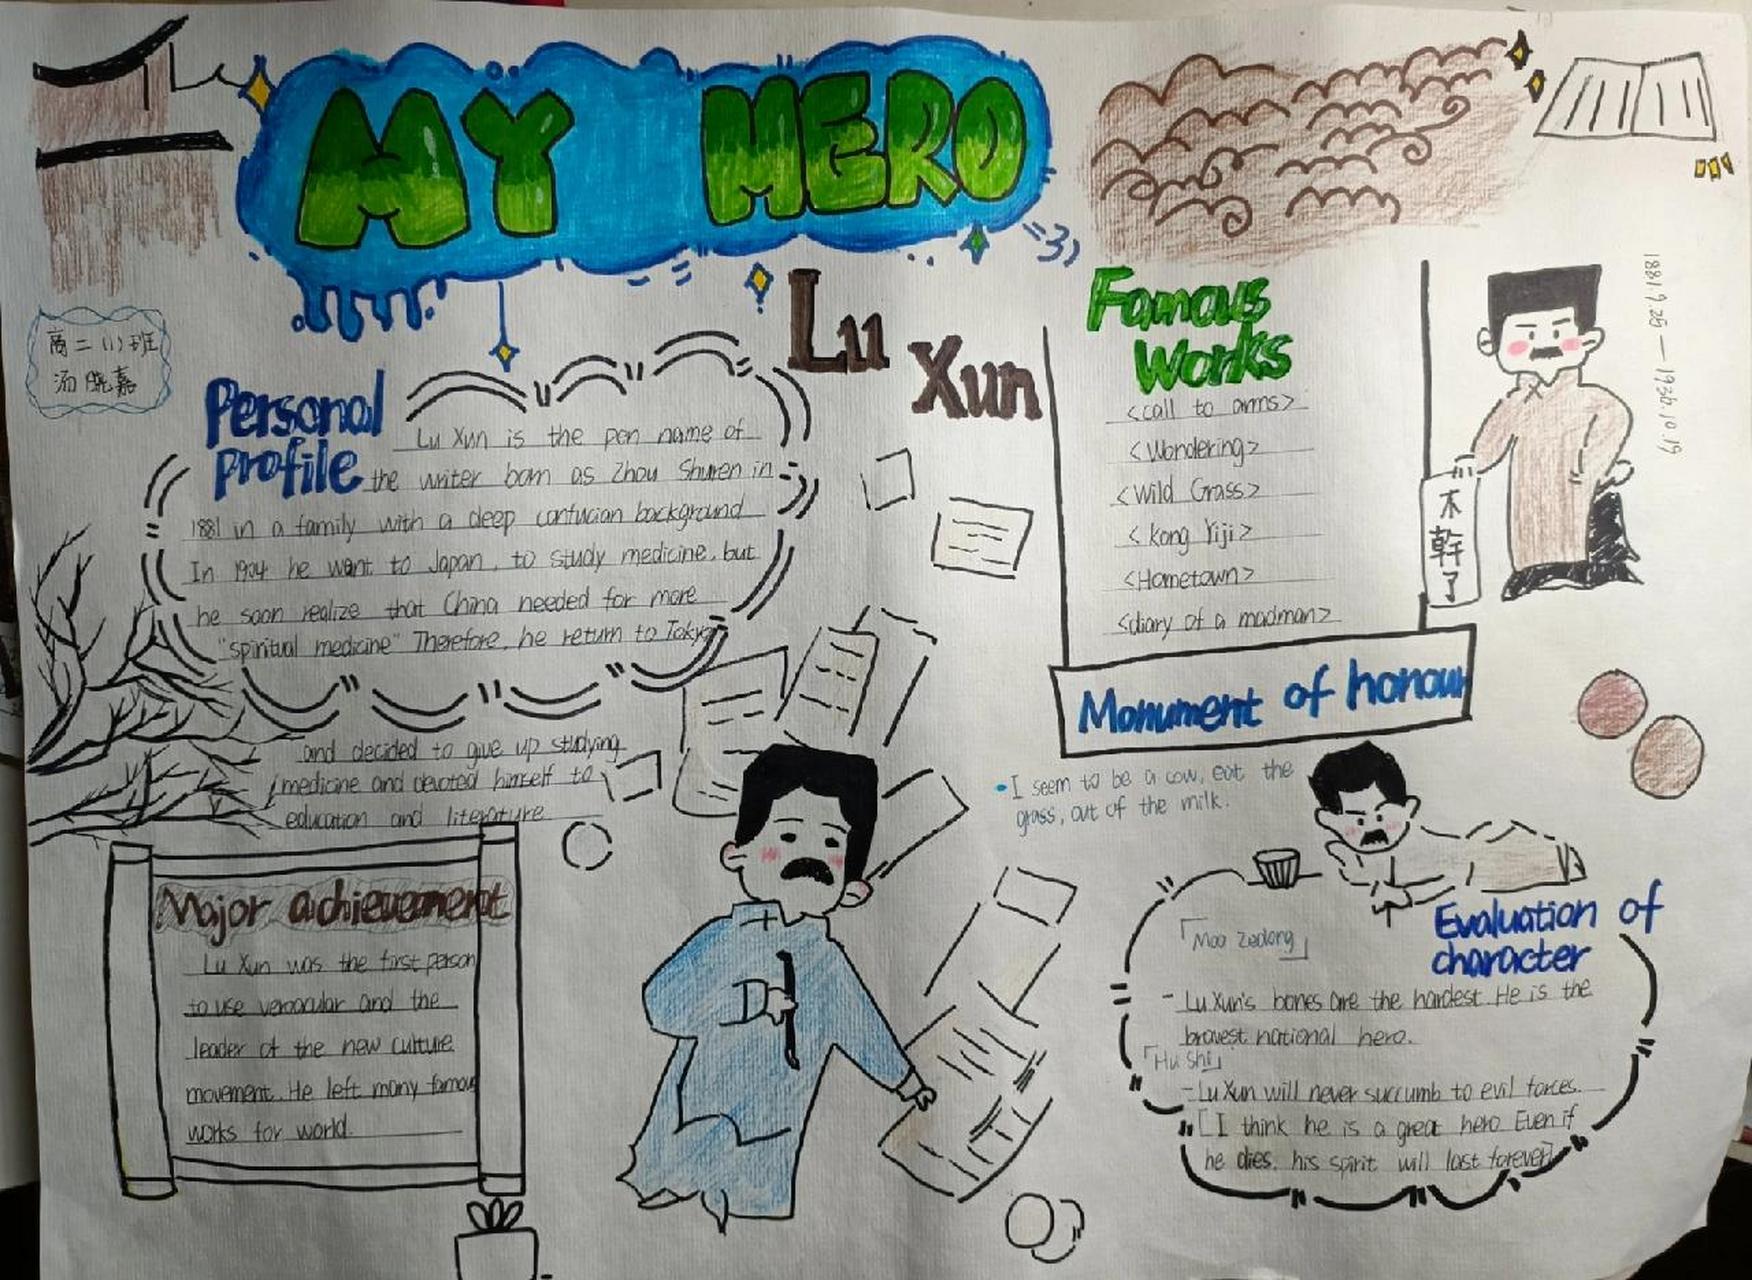 MY HERO
Lu
Xun
商二(1)班
汤晓嘉
Personal
Profile
Lu Xun is the pen name of
the writer born as Zhou Shuren in
1881 in a family with a deep confucian background
In 1904 he want to Japan, to study medicine, but
he soon realize that China needed for more
"spiritual medicine" Therefore, he return to Tokyo
and decided to give up studying
medicine and devoted himself to
education and literature
Major achievement
Lu Xun was the first person
to use vernacular and the
leader of the new culture
movement. He left many famous
works for world.
Famous
Works
<call to arms>
<Wandering>
<Wild Grass>
<kong Yiji>
<Hometown>
<diary of a madman>
Monument of honour
1881.9.25 — 1936.10.19
不幹了
•I seem to be a cow, eat the
grass, out of the milk.
Evaluation of
character
「Mao Zedong」
- Lu Xun's bones are the hardest. He is the
bravest national hero.
「Hu Shi」
- Lu Xun will never succumb to evil forces.
[I think he is a great hero Even if
he dies, his spirit will last forever]